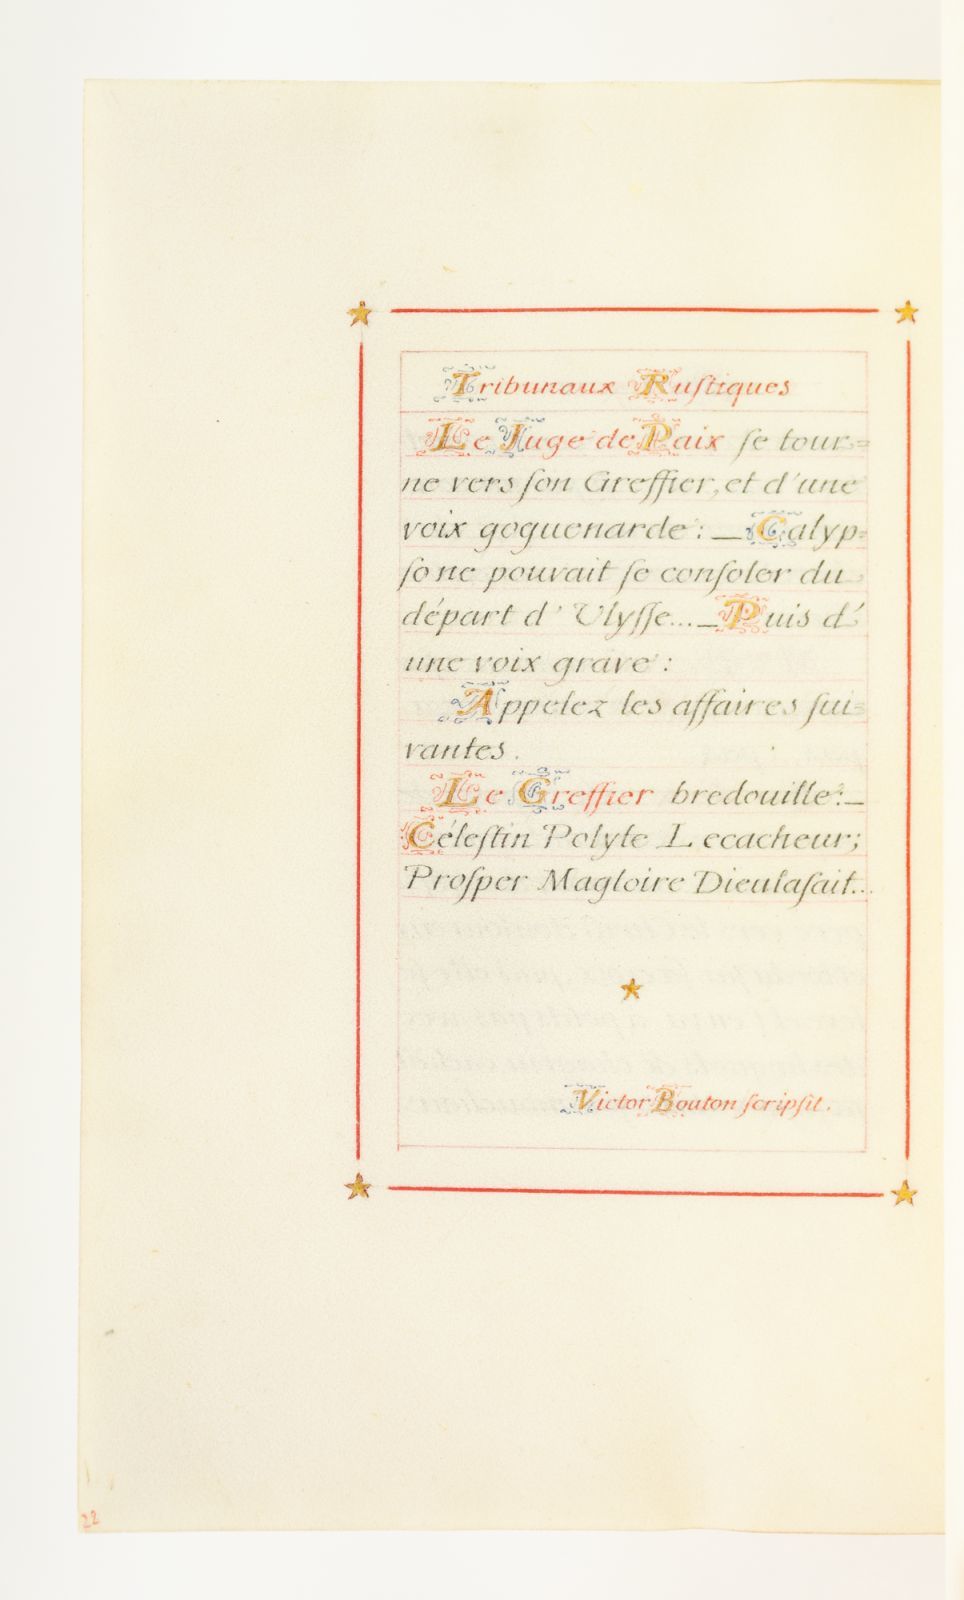 Tribunaux Ruſtiques
Le Juge de Paix ſe tour=
ne vers ſon Greffier, et d'une
voix goguenarde : _ Calyp=
ſo ne pouvait ſe conſoler du
départ d' Ulyſſe... _ Puis d'
une voix grave :
Appelez les affaires ſui=
vantes.
Le Greffier bredouille : _
Céleſtin Polyte Lecacheur;
Proſper Magloire Dieulafait...
Victor Bouton ſcripſit.
22